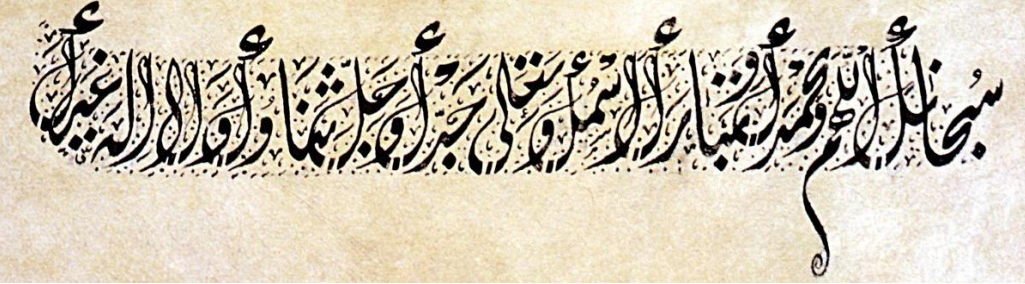 سبحانك اللهم وبحمدك وتبارك اسمك وتعالى جدك وجل ثناؤك ولا إله غيرك